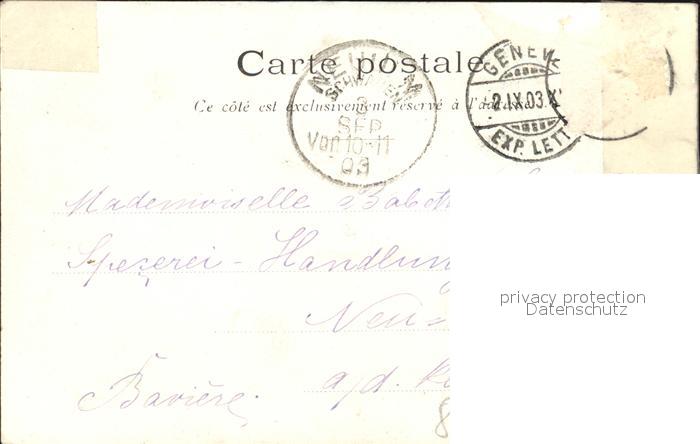 Carte postale
Ce côté est exclusivement réservé à l'adresse.
NEU-ULM
SCHWABEN
3
SEP
Vor 10-11
03
GENEV
2.IX.03.X
EXP. LETT
Mademoiselle
Spezerei-Handlung
Neu-
a/d.
Bavière.
8
privacy protection
Datenschutz